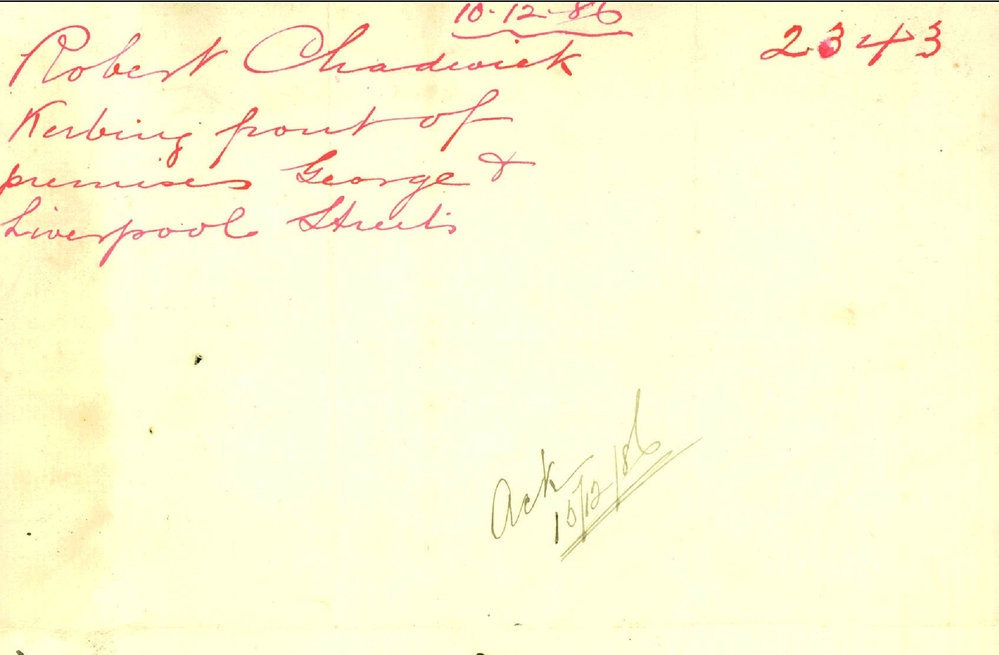 10-12-86
Robert Chadwick 2343
Kerbing front of
premises George &
Liverpool Streets
Ack
15/12/86